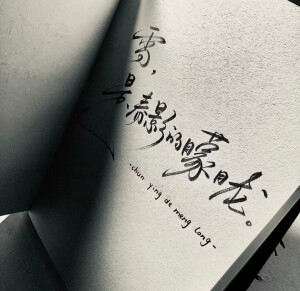 雾，
是春影的朦胧。
-chun ying de meng long-